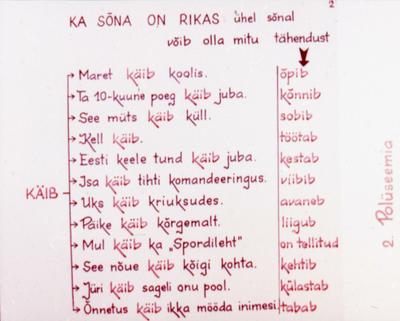 2
KA SÕNA ON RIKAS ühel sõnal
võib olla mitu tähendust
KÄIB
Maret käib koolis. õpib
Ta 10-kuune poeg käib juba. kõnnib
See müts käib küll. sobib
Kell käib. töötab
Eesti keele tund käib juba. kestab
Isa käib tihti komandeeringus. viibib
Uks käib kriuksudes. avaneb
Päike käib kõrgemalt. liigub
Mul käib ka „Spordileht" on tellitud
See nõue käib kõigi kohta. kehtib
Jüri käib sageli onu pool. külastab
Õnnetus käib ikka mööda inimesi. tabab
2. Polüseemia